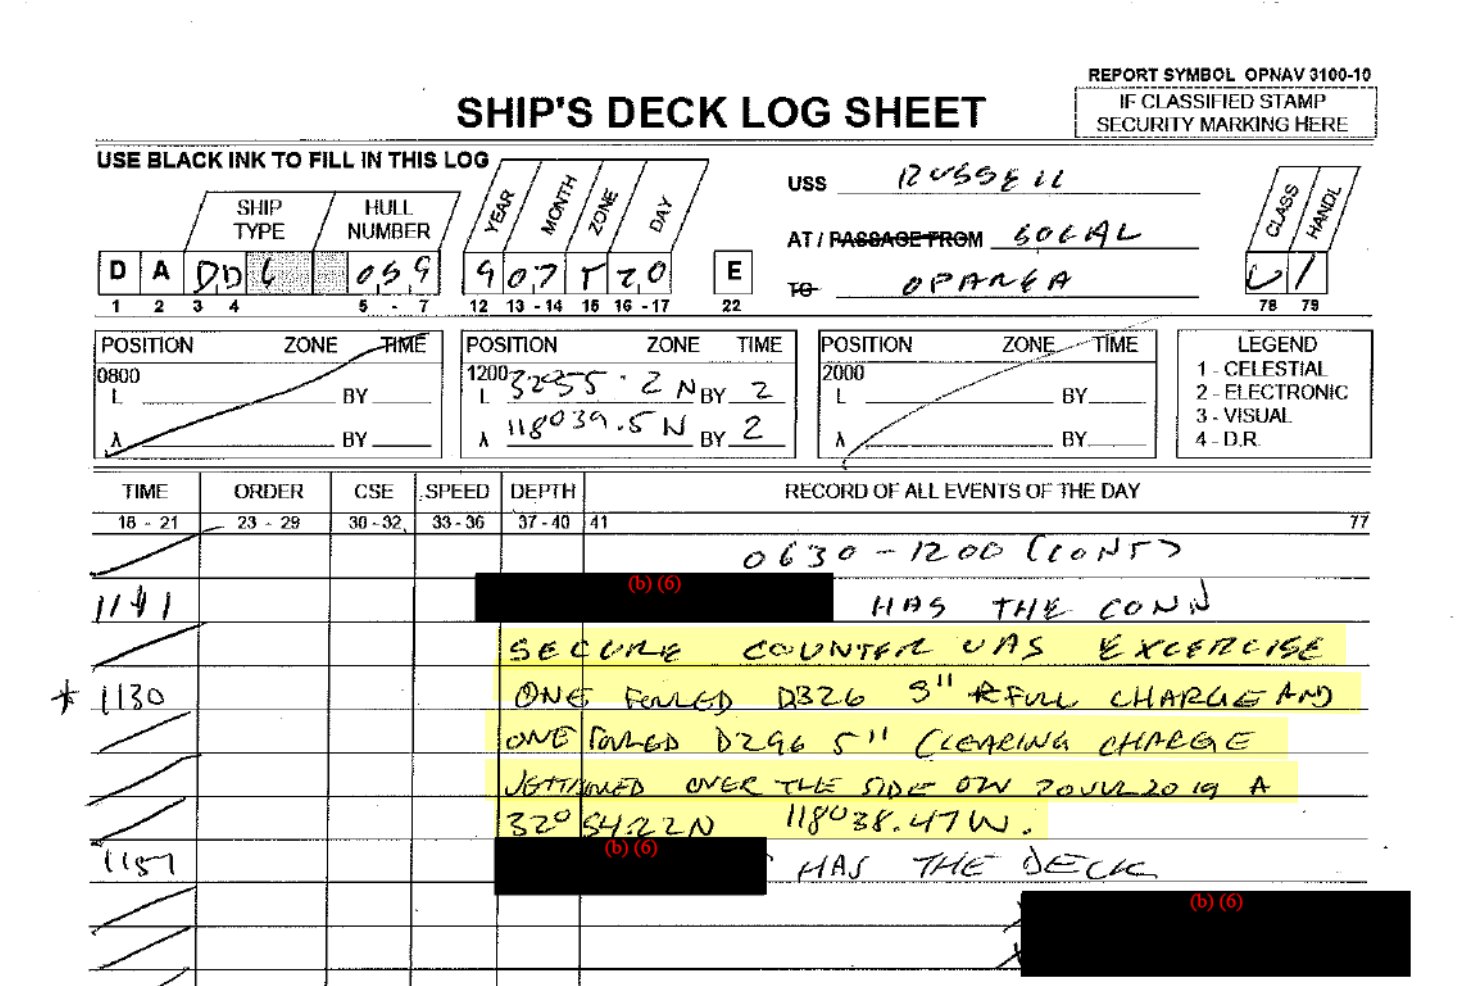 REPORT SYMBOL OPNAV 3100-10
SHIP'S DECK LOG SHEET
IF CLASSIFIED STAMP
SECURITY MARKING HERE
USE BLACK INK TO FILL IN THIS LOG
SHIP TYPE HULL NUMBER YEAR MONTH ZONE DAY
USS RUSSELL
CLASS HANDL
AT / PASSAGE FROM SOCAL
D A DD 059 9 07 T 20 E
TO OPAREA
U
1 2 3 4 5 - 7 12 13 - 14 15 16 - 17 22 78 79
POSITION ZONE TIME POSITION ZONE TIME POSITION ZONE TIME LEGEND
0800 1200 2000
L BY L 3255.2 N BY 2 L BY
λ BY λ 118039.5 N BY 2 λ BY
1 - CELESTIAL
2 - ELECTRONIC
3 - VISUAL
4 - D.R.
TIME ORDER CSE SPEED DEPTH RECORD OF ALL EVENTS OF THE DAY
18 - 21 23 - 29 30 - 32 33 - 36 37 - 40 41 77
0630 - 1200 (CONT)
(b) (6)
1141 HAS THE CONN
SECURE COUNTER UAS EXCERCISE
* 1130 ONE FOULED D326 5" FULL CHARGE AND
ONE FOULED D296 5" CLEARING CHARGE
OVER THE SIDE ON 20JUL2019 A
32° 54.22N 118038.47W.
(b) (6)
1157 HAS THE DECK
(b) (6)